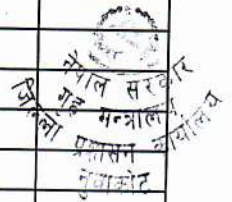 नेपाल सरकार
गृह मन्त्रालय
जिल्ला प्रशासन कार्यालय
नुवाकोट